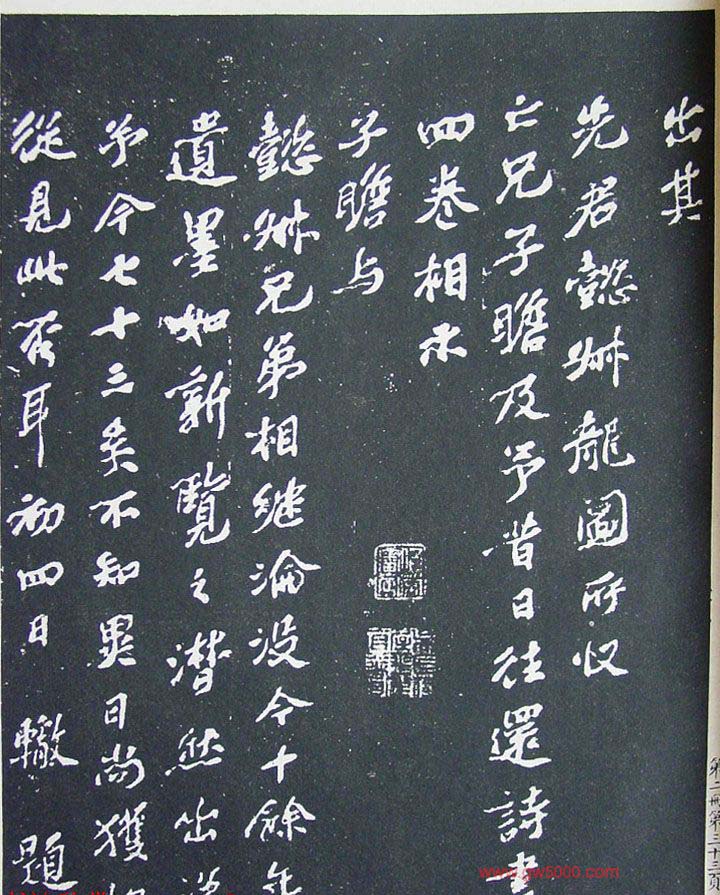 出其
先君懿叔龍圖所收
亡兄子瞻及予昔日往還詩書
四卷相示
子瞻与
懿叔兄弟相继淪没今十餘年
遺墨如新覽之潸然出
予今七十三矣不知異日尚獲
從見此否耳初四日 轍 題
第二冊第三十三頁
5000.com